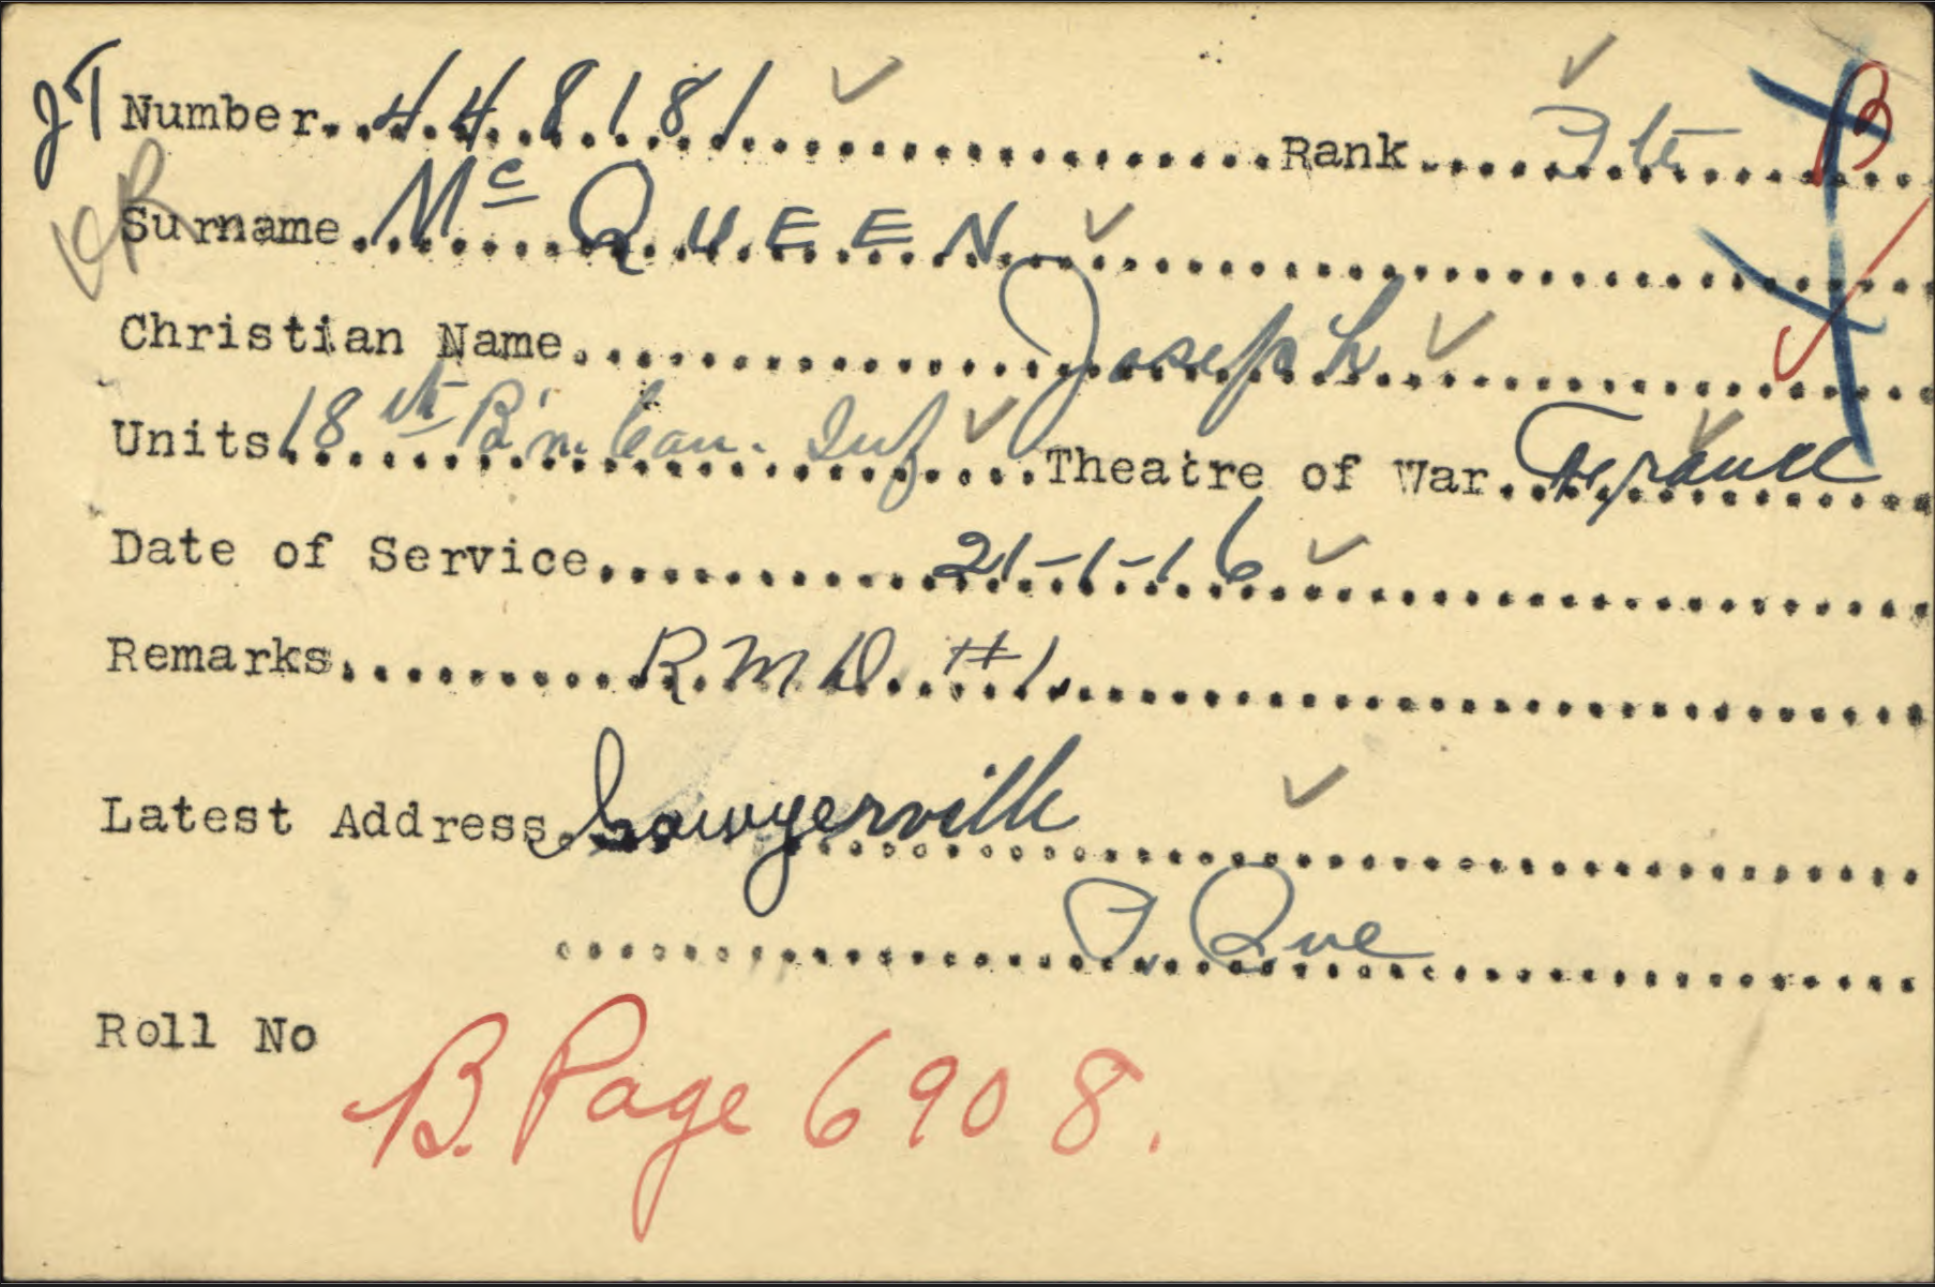 JT Number 448181 Rank Pte B
Surname McQUEEN
Christian Name Joseph
Units 18th B'n. Can. Inf Theatre of War France
Date of Service 21-1-16
Remarks R.M.D. #1.
Latest Address Sawyerville
P. Que
Roll No
B. Page 6908.